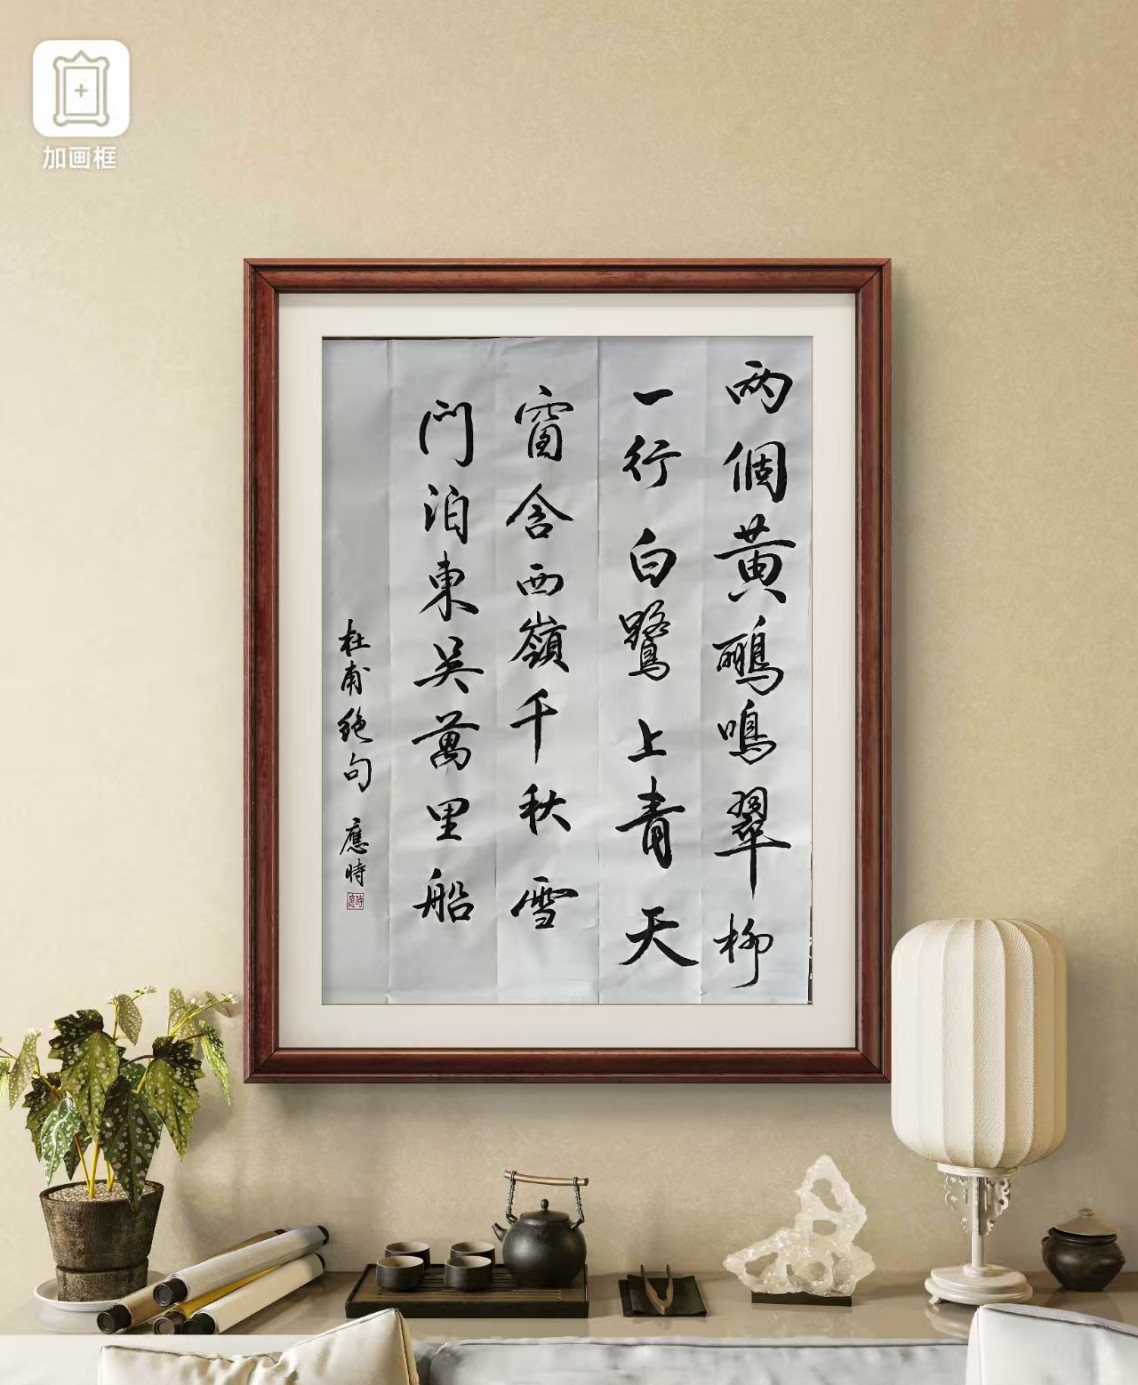 加画框
两個黄鸝鳴翠柳
一行白鷺上青天
窗含西嶺千秋雪
门泊東吴萬里船
杜甫絶句 應時